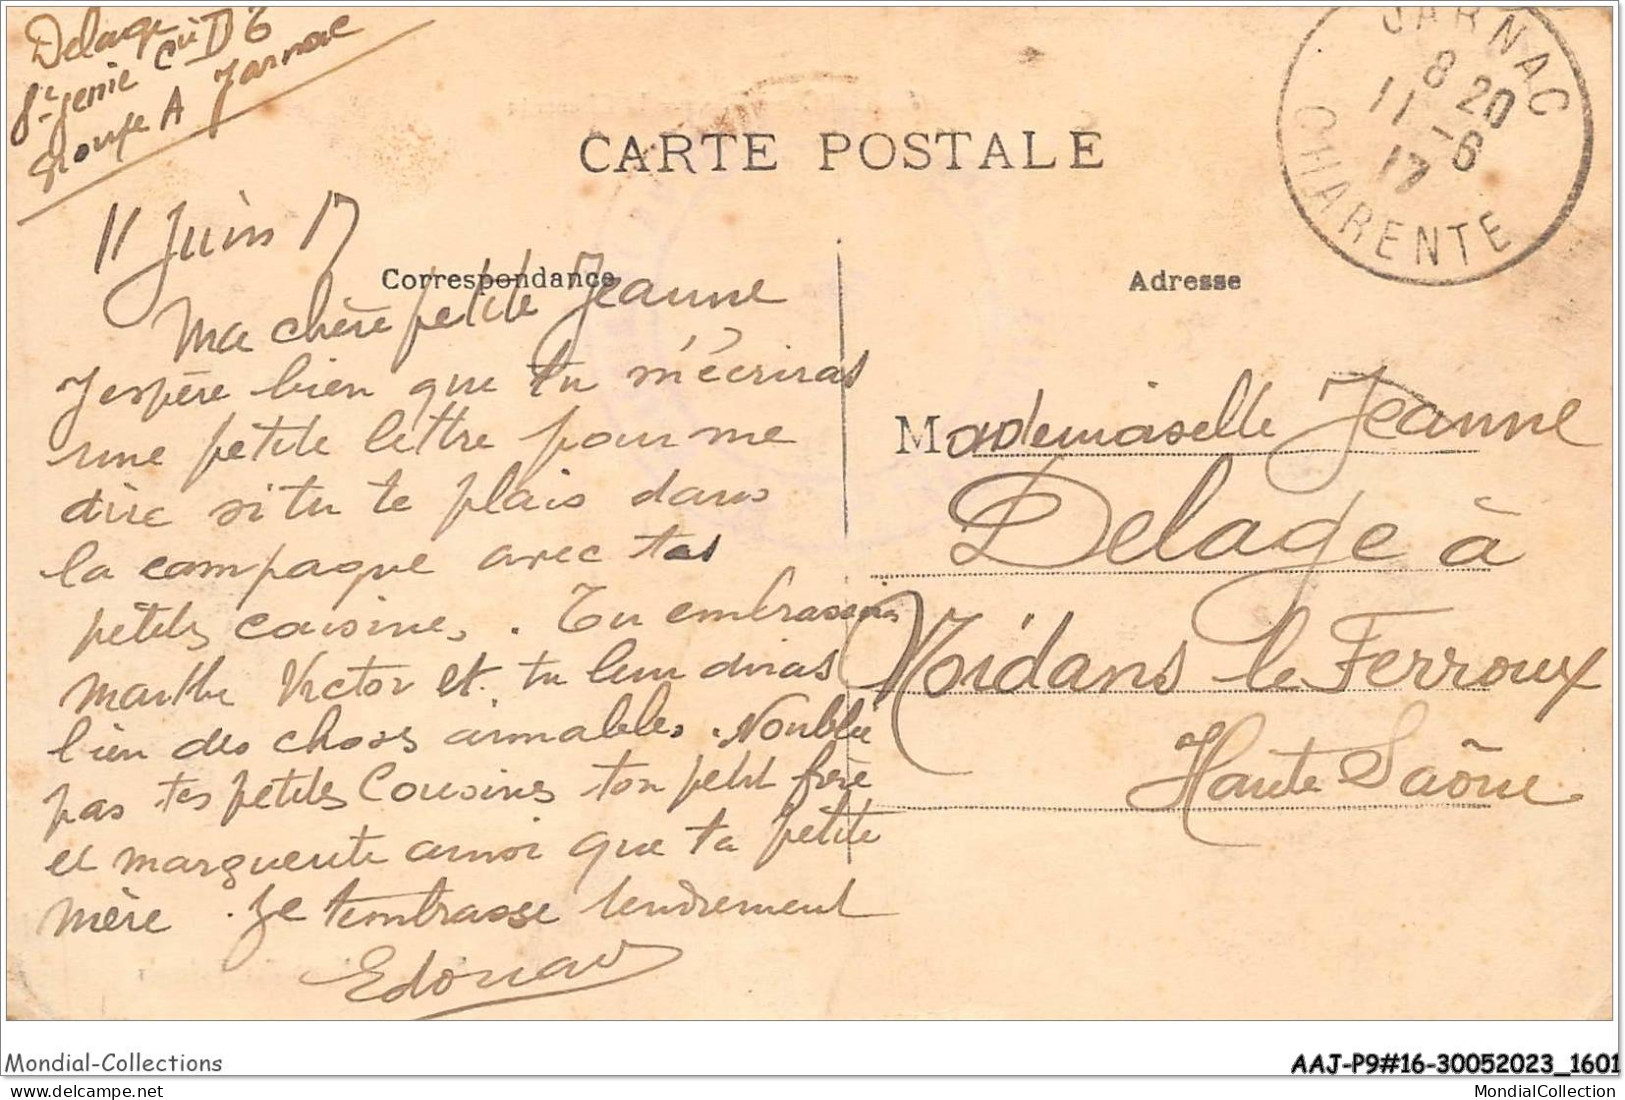 Delage
Sᵗ Genie Cⁱᵉ D 6
Groupe A Jarnac
JARNAC
8 20
11 -6
17
CHARENTE
CARTE POSTALE
11 Juin 17
Correspondance
Adresse
Ma chère petite Jeanne
J'espère bien que tu m'écriras
une petite lettre pour me
dire si tu te plais dans
la campagne avec tes
petits cousins. Tu embrasseras
Marthe Victor et tu leur diras
bien des choses aimables. N'oublie
pas tes petits Cousins ton petit frère
et marguerite ainsi que ta petite
mère. Je t'embrasse tendrement
Edouard
Mademoiselle Jeanne
Delage à
Noidans le Ferroux
Haute Saône
Mondial-Collections
AAJ-P9#16-30052023_1601
MondialCollection